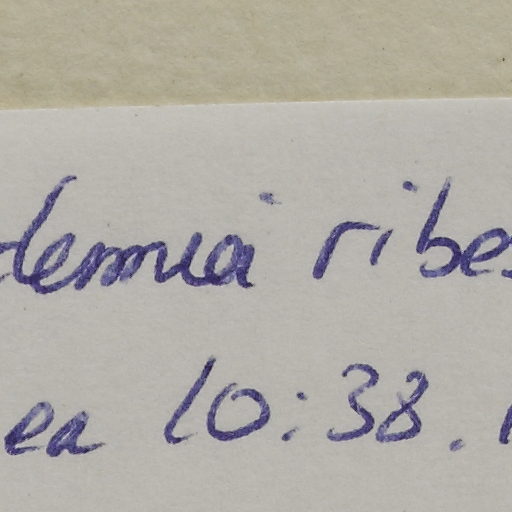 demia ribes
ea 10:38.